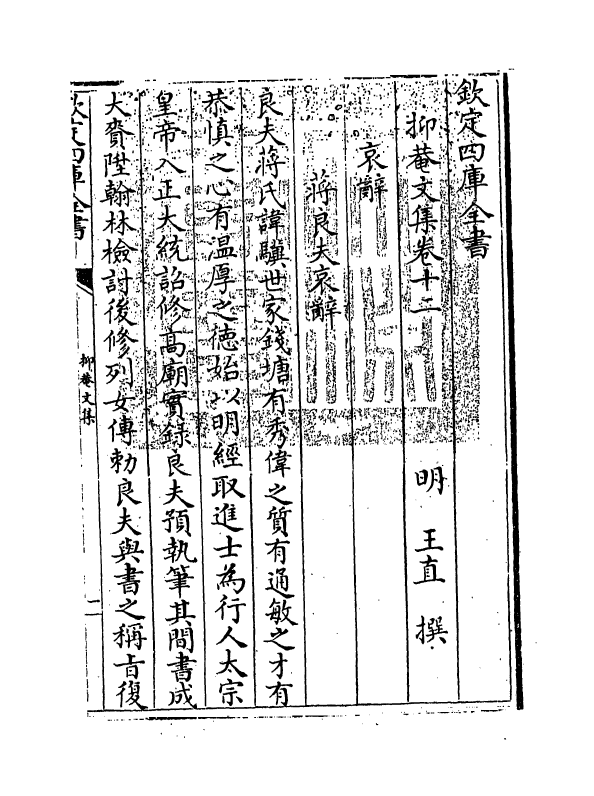 欽定四庫全書
抑菴文集卷十二
明　王直　撰
哀辭
蔣良夫哀辭
良夫蔣氏諱驥世家錢塘有秀偉之質有通敏之才有
恭慎之心有温厚之德始以明經取進士為行人太宗
皇帝入正大統詔修高廟實錄良夫預執筆其間書成
大賚陞翰林檢討後修列女傳勅良夫與書之稱㫖復
欽定四庫全書
抑菴文集